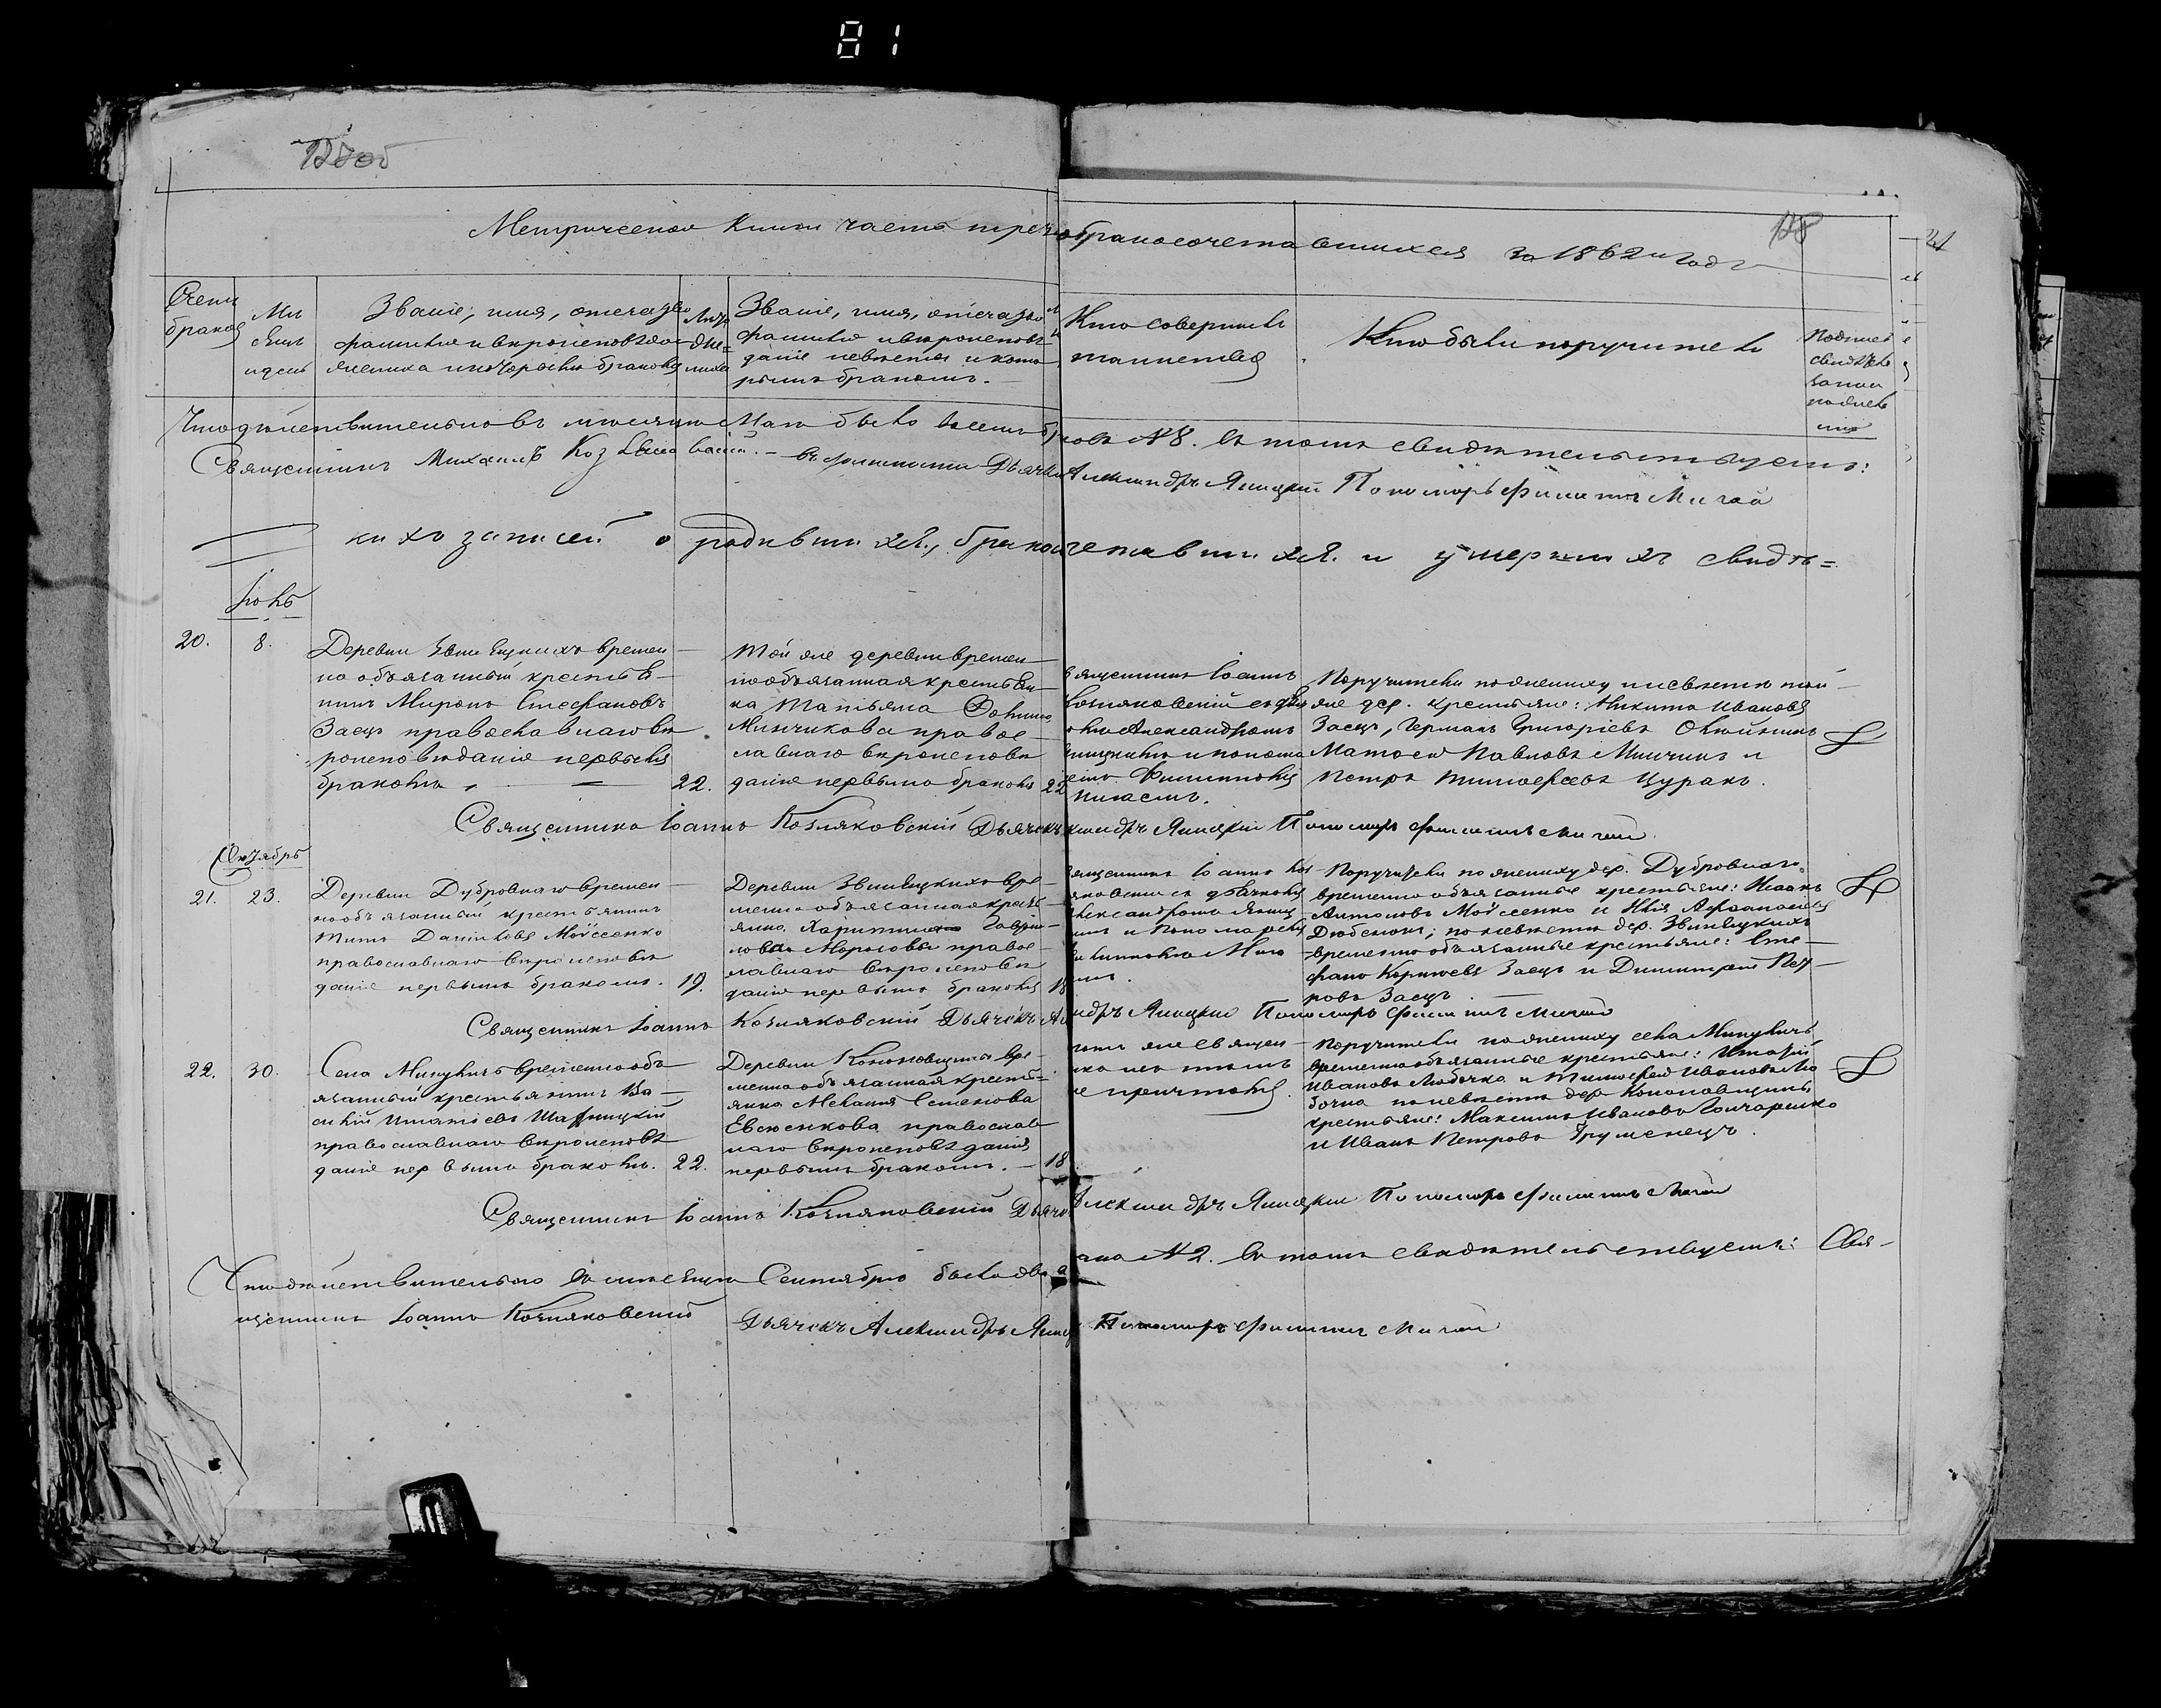 81
128
Метрической Книги часть третья о бракосочетавшихся за 1862й годъ
Счетъ
браковъ
Мѣ
сяцъ
и день
Званіе, имя, отчество
фамилія и вѣроисповѣда
ніе жениха и которымъ бракомъ
Званіе, имя, отчество
фамилія и вѣроисповѣ
даніе невѣсты и кото
рымъ бракомъ.
Кто совершалъ
таинство
Кто были поручители
Что дѣйствительно въ мѣсяцѣ Маѣ было восемь браковъ №8. въ томъ свидѣтельствуемъ:
Священникъ Михаилъ Дьячекъ Александръ Яницкій Пономарь Филиппъ Мигай
кихъ записей о родившихся, бракосочетавшихся и умершихъ свидѣ=
Іюль
20.
8.
Деревни Звиняцкихъ времен-
но обязанный крестья-
нинъ Миронъ Стефановъ
Заецъ православнаго вѣ
роисповѣданія первымъ
бракомъ
22.
Той же деревни времен-
но обязанная крестьян-
ка Татьяна
Минчикова правос-
лавнаго вѣроисповѣ
данія первымъ бракомъ
22
Священникъ Іоаннъ
Козляковскій съ дья
Александромъ
Яницкимъ и понома
Филиппомъ
Мигаемъ.
Поручители по женихѣ и невѣстѣ той-
же дер. крестьяне: Никита Ивановъ
Заецъ, Германъ Григорьевъ
Матвей Павловъ Минчикъ и
Петръ Тимофеевъ Цуранъ.
Священникъ Іоаннъ Козляковскій Дьячекъ Александръ Яницкій Пономарь Филиппъ Мигай
Октябрь
21.
23.
Деревни Дубровнаго времен-
но обязанный крестьянинъ
Титъ Даниловъ Моисеенко
православнаго вѣроисповѣ
данія первымъ бракомъ.
19.
Деревни Звиняцкихъ вре-
менно обязанная кресть-
янка Харитина Гаври-
лова Морозова правос-
лавнаго вѣроисповѣ
данія первымъ бракомъ
18
Священникъ Іоаннъ Коз
ляковскій съ дьячкомъ
Александромъ Яниц
кимъ и Пономаремъ
Филиппомъ Мига
емъ.
Поручители по женихѣ дер. Дубровнаго
временно обязанные крестьяне: Исаакъ
Антоновъ Моисеенко и Илія Афанасьевъ
Дюбенокъ; по невѣстѣ дер. Звиняцкихъ
временно обязанные крестьяне: Сте-
фанъ Корнѣевъ Заецъ и Димитрій Пет-
ровъ Заецъ.
Священникъ Іоаннъ Козляковскій Дьячекъ Александръ Яницкій Пономарь Филиппъ Мигай
22.
30.
Села Микуличъ временно обя-
занный крестьянинъ Ва-
силій Игнатіевъ
православнаго вѣроисповѣ
данія первымъ бракомъ.
22.
Деревни Кононовщины вре-
менно обязанная кресть=
янка Меланія Семенова
Евсюенкова православ
наго вѣроисповѣданія
первымъ бракомъ.
18
тотъ же священ-
никъ съ тѣмъ
же причтомъ.
Поручители по женихѣ села Микуличъ
временно обязанные крестьяне: Игнатій
Ивановъ Любочко и Тимофей Ивановъ Лю
бочка по невѣстѣ дер. Кононовщины
крестьяне: Максимъ Ивановъ Гончаренко
и Иванъ Петровъ Груменецъ.
Священникъ Іоаннъ Козляковскій Дьячекъ Александръ Яницкій Пономарь Филиппъ Мигай
Что дѣйствительно въ мѣсяцѣ Сентябрѣ было два брака №2. въ томъ свидѣтельствуемъ: Свя-
щенникъ Іоаннъ Козляковскій Дьячекъ Александръ Яницкій Пономарь Филиппъ Мигай